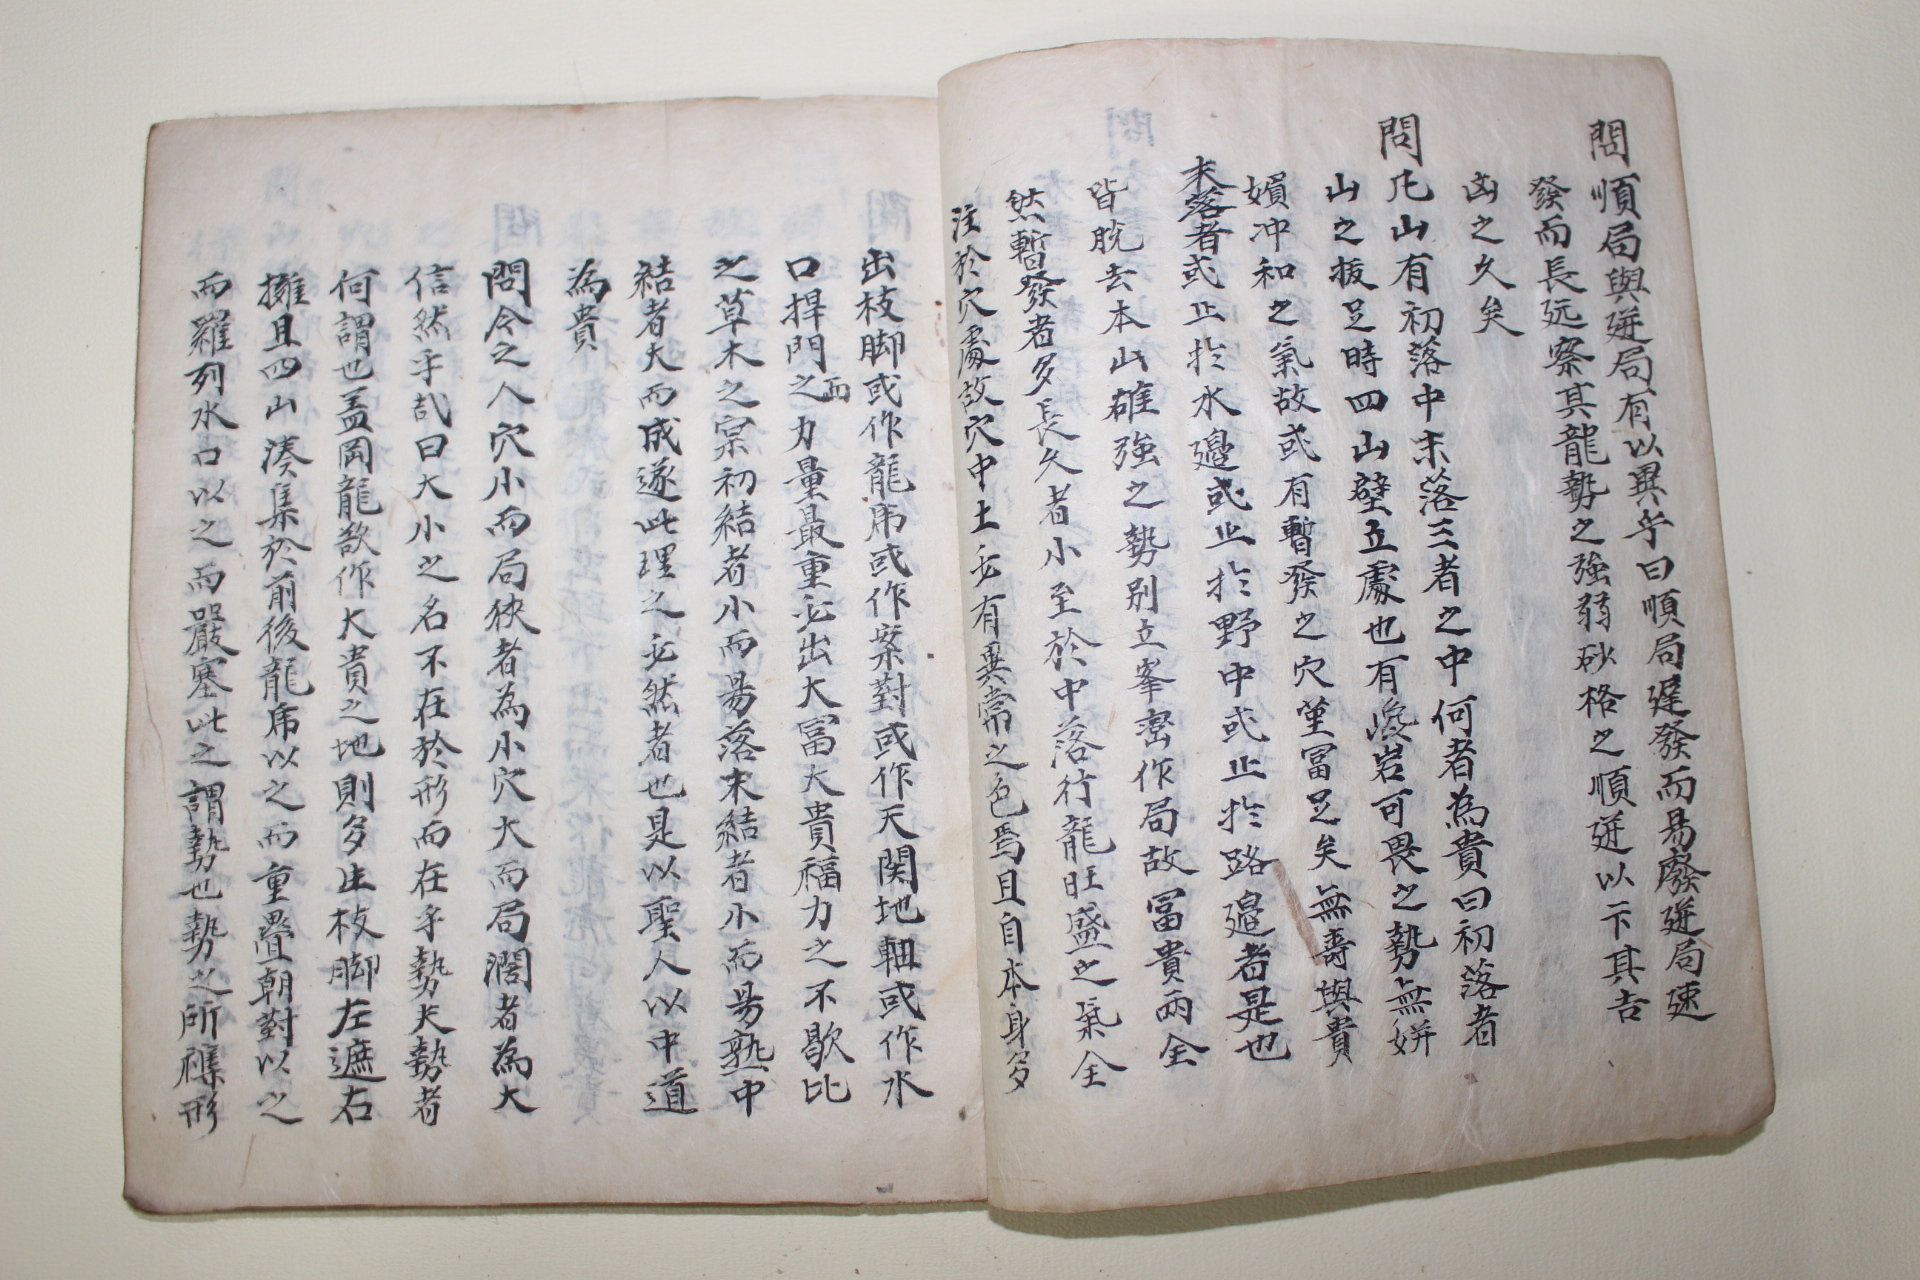 問順局與逆局有以異乎曰順局遅發而易廢逆局速
發而長逺察其龍勢之強弱砂格之順逆以下其吉
凶之久矣
問凡山有初落中末落三者之中何者為貴曰初落者
山之拔足時四山壁立處也有巉岩可畏之勢無妍
嬪冲和之氣故或有暫發之穴堇冨足矣無壽與貴
末落者或止扵水邊或止扵野中或止扵路邉者是也
皆脱去本山雄強之勢别立峯巒作局故冨貴兩全
然暫發者多長久者小至於中落行龍旺盛之氣全
注於穴處故穴中土必有異常之色焉且自本身多
出枝脚或作龍虎或作案對或作天関地軸或作水
口捍門之而力量最重必出大冨大貴福力之不歇比
之草木之宲初結者小而昜落末結者小而昜熟中
結者大而成遂此理之必然者也是以聖人以中道
為貴
問今之人穴小而局狹者為小穴大而局濶者為大
信然乎㢤曰大小之名不在於形而在乎勢夫勢者
何謂也盖岡龍欲作大貴之地則多生枝脚左遮右
擁且四山湊集於前後龍虎以之而重疊朝對以之
而羅列水口以之而嚴塞此之謂勢也勢之所穕形